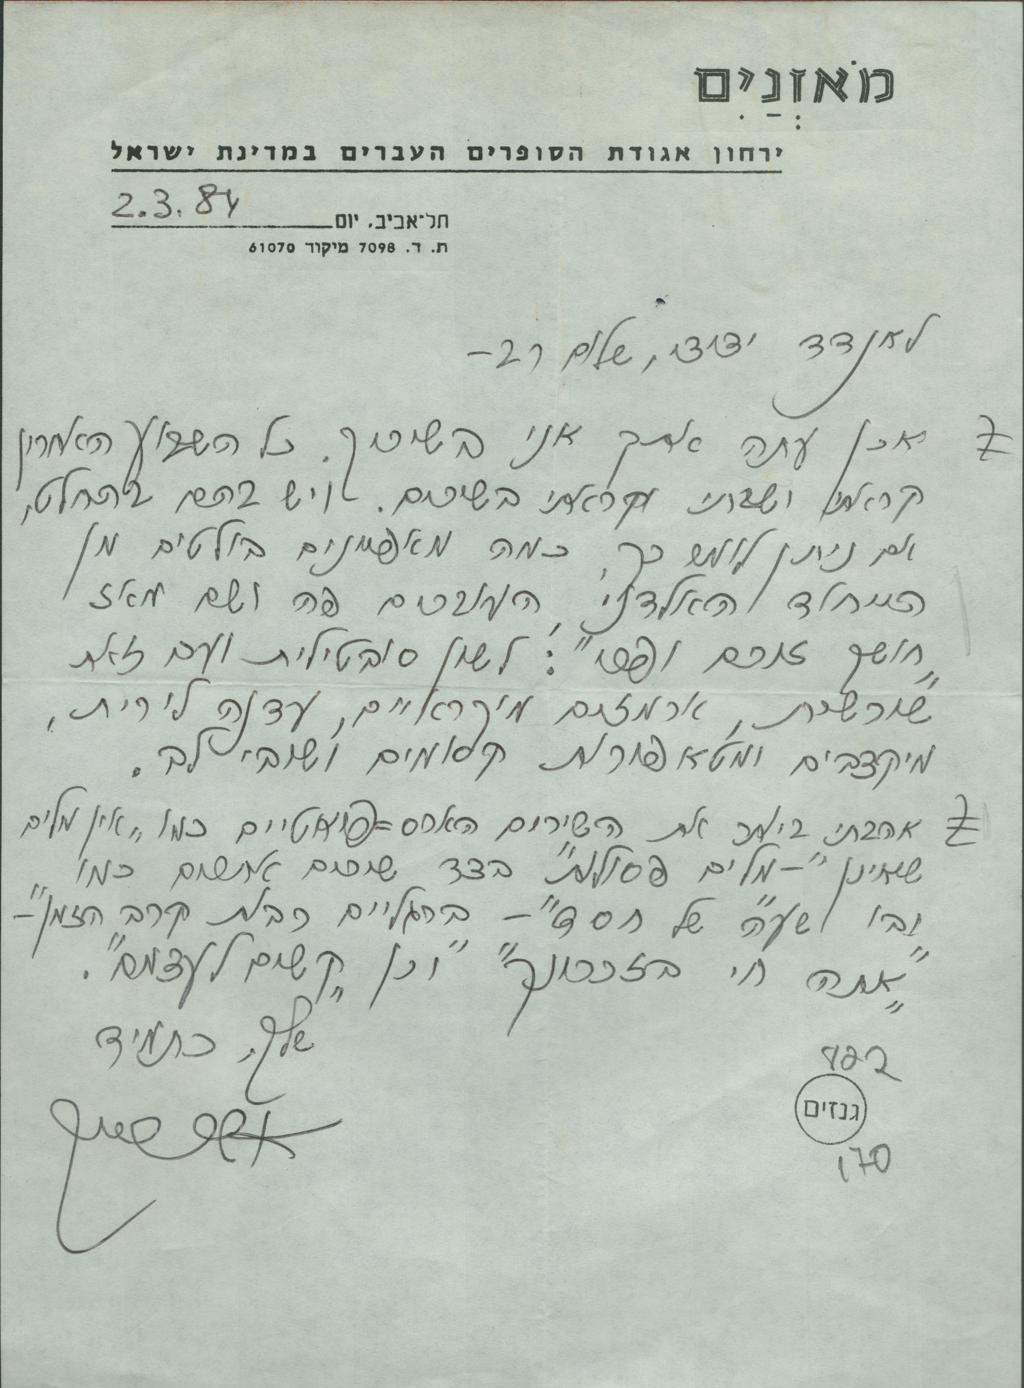 מֹאזְנַיִם
ירחון אגודת הסופרים העברים במדינת ישראל
תל־אביב, יום 2.3.84
ת. ד. 7098 מיקוד 61070
לאנדד ידידי, שלום רב –
אכן עתה אתך אני בשיריך. כל השבוע האחרון
קראתי ושבתי וקראתי בשירים. ויש בהם בהחלט,
אם ניתן לומר כך, כמה מאפיינים בולטים מן
הייחוד האלדני, הידועים פה ושם מאז
: לשון סובטילית ועם זאת
שורשית, ארמזים מיקראיים, עדנה לירית,
מיקצבים ומטאפורות קסומים ושובי לב.
אהבתי ביותר את השירים הארס=פואטיים כמו „אין מלים
שאינן" – מלים פסולות" בצד שירים אחרים כמו
ובו שעה של חסד" – ברגליים רבות קרב הזמן" –
„אתה חי בזכרונך" וכן „קשים לעצמם".
שלך, כתמיד
גנזים
170